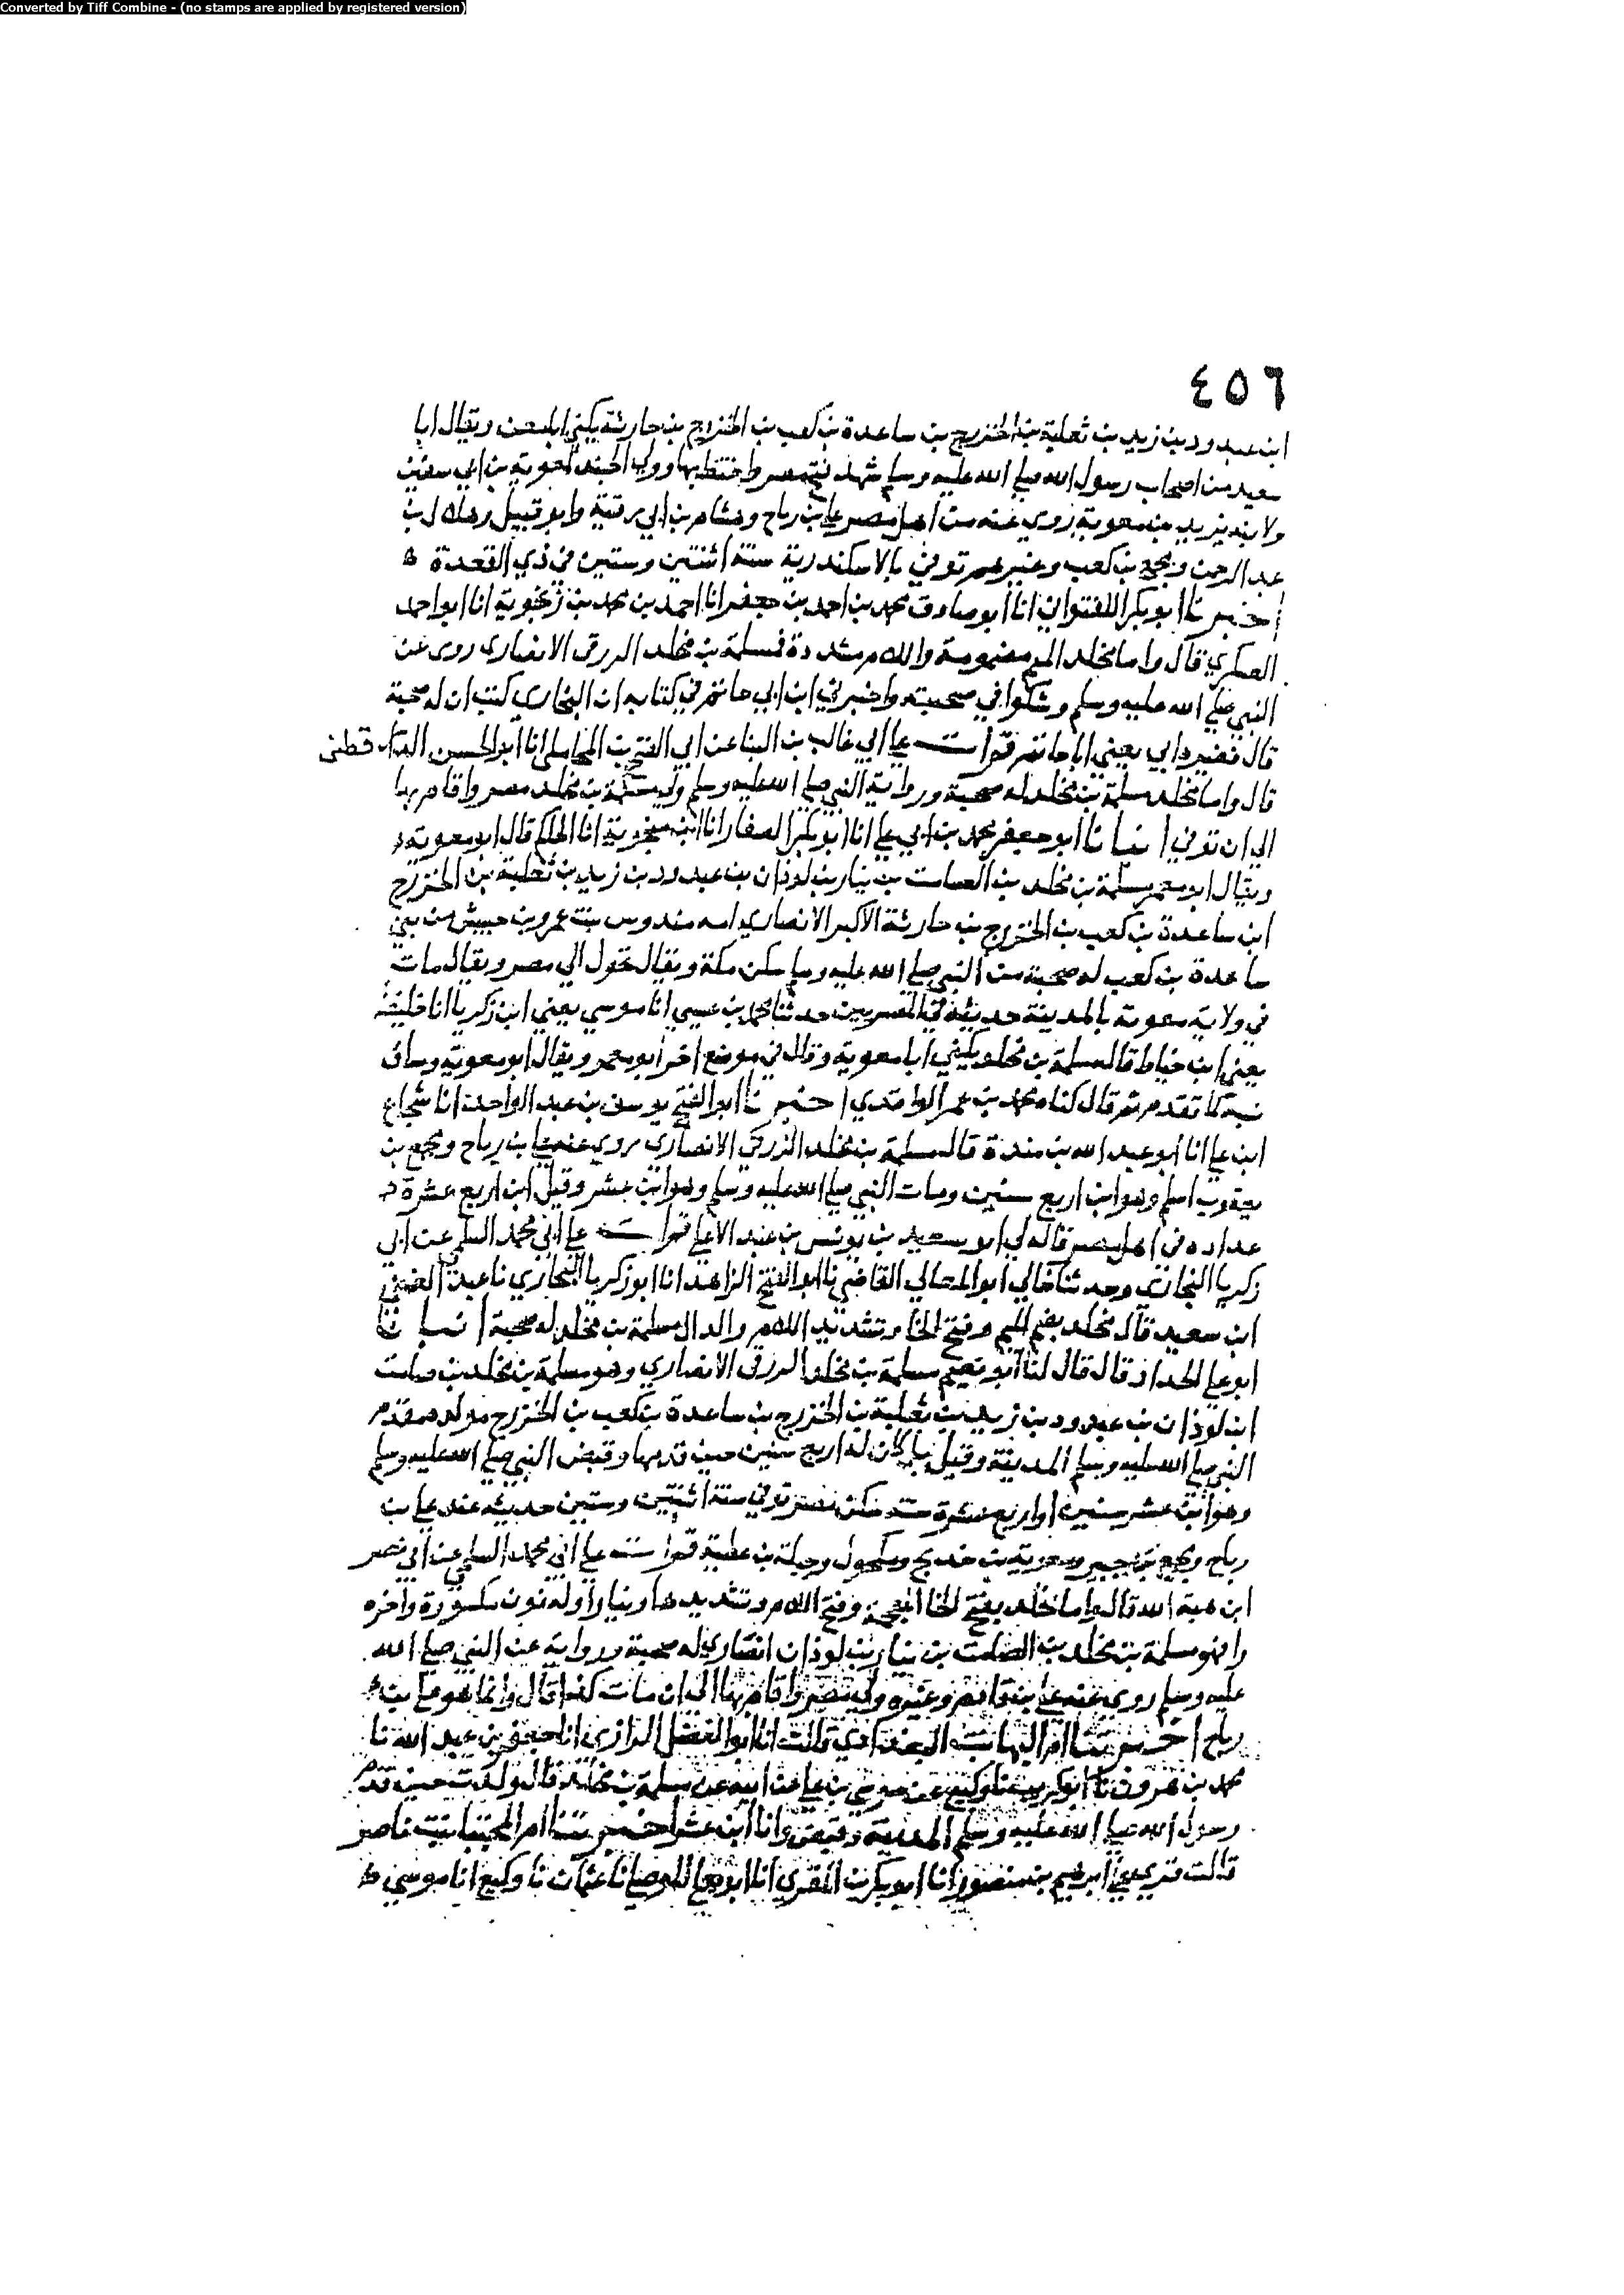 Converted by Tiff Combine - (no stamps are applied by registered version)
٤٥٦
ابن عبد ود بن زيد بن ثعلبة بن الخزرج بن ساعدة بن كعب بن الخزرج بن حارثة يكنى ابا معن ويقال ابا
سعيد من اصحاب رسول الله صلى الله عليه وسلم شهد فتح مصر واختط بها وولي الجند لمعوية بن ابي سفين
ولابنه يزيد بن معوية روى عنه من اهل مصر علي بن رباح وهشام بن ابي رقية وابو قبيل وهلال بن
عبد الرحمن ومجمع بن كعب وغيرهم توفي بالاسكندرية سنة اثنتين وستين في ذي القعدة
اخبرنا ابو بكر اللفتواني انا ابو صادق محمد بن احمد بن جعفر انا احمد بن محمد بن زنجوية انا ابو احمد
العسكري قال واما مخلد الميم مضمومة واللام مشددة فمسلمة بن مخلد الزرقي الانصاري روى عن
النبي صلى الله عليه وسلم وشكوا في صحبته واخبرني ابن ابي حاتم في كتابه ان البخاري كتب ان له صحبة
قال فغيره ابي يعني ابا حاتم قرات على ابي غالب بن البنا عن ابي الفتح بن المحاملي انا ابو الحسن الدارقطني
قال واما مخلد مسلمة بن مخلد له صحبة ورواية النبي صلى الله عليه وسلم ولي مسلمة بن مخلد مصر واقام بها
الى ان توفي انبانا ابو جعفر محمد بن ابي علي انا ابو بكر الصفار انا ابن منجوية انا الحاكم قال ابو معوية
ويقال ابو معمر مسلمة بن مخلد بن الصامت بن نيار بن لوذان بن عبد ود بن زيد بن ثعلبة بن الخزرج
ابن ساعدة بن كعب بن الخزرج بن حارثة الاكبر الانصاري امه مندوس بنت عمرو بن حبيش من بني
ساعدة بن كعب له صحبة من النبي صلى الله عليه وسلم سكن مكة ويقال تحول الى مصر ويقال مات
في ولاية معوية بالمدينة حديثه في المصريين حدثنا محمد بن عيسى انا موسى يعني ابن زكريا انا خليفة
يعني ابن خياط قال مسلمة بن مخلد يكنى ابا معوية وقال في موضع اخر ابو معمر ويقال ابو معوية وساق
نسبه كما تقدم ثم قال كناه محمد بن عمر الواقدي اخبرنا ابو الفتح يوسف بن عبد الواحد انا شجاع
ابن علي انا ابو عبد الله بن مندة قال مسلمة بن مخلد الزرقي الانصاري روى عنه علي بن رباح ومجمع بن
يعقوب اسلم وهو ابن اربع سنين ومات النبي صلى الله عليه وسلم وهو ابن عشر وقيل ابن اربع عشرة
عداده في اهل مصر قاله لي ابو سعيد بن يونس بن عبد الاعلى قرات على ابي محمد السلمي عن ابي
زكريا البخاري وحدثنا خالي ابو المعالي القاضي نا ابو الفتح الزاهد انا ابو زكريا البخاري نا عبد الغني
ابن سعيد قال مخلد بضم الميم وفتح الخا وتشديد اللام والدال مسلمة بن مخلد له صحبة انبانا
ابو علي الحداد قال قال لنا ابو نعيم مسلمة بن مخلد الزرقي الانصاري وهو مسلمة بن مخلد بن صامت
ابن لوذان بن عبد ود بن زيد بن ثعلبة بن الخزرج بن ساعدة بن كعب بن الخزرج مولده مقدم
النبي صلى الله عليه وسلم المدينة وقيل بل كان له اربع سنين حين قدمها وقبض النبي صلى الله عليه وسلم
وهو ابن عشر سنين او اربع عشرة سنة سكن مصر توفي سنة اثنتين وستين حديثه عند علي بن
رباح ومجمع بن جبير ومعوية بن خديج ومكحول وجبلة بن عطية قرات على ابي محمد السلمي عن ابي نصر
ابن هبة الله قال واما مخلد بفتح الخا المعجمة وفتح اللام وتشديدها ونيار اوله نون مكسورة واخره
را فهو مسلمة بن مخلد بن الصامت بن نيار بن لوذان انصاري له صحبة ورواية عن النبي صلى الله
عليه وسلم روى عنه علي بن قاهم وغيره ولي مصر واقام بها الى ان مات كذا قال وانما هو علي بن
رباح اخبرتنا ام البها بنت البغدادي قالت انا ابو الفضل الرازي انا جعفر بن عبد الله نا
محمد بن هرون نا ابو كريب نا وكيع عن موسى بن علي عن ابيه عن مسلمة بن مخلد قال ولدت حين قدم
رسول الله صلى الله عليه وسلم المدينة وقبض وانا ابن عشر اخبرتنا ام المجتبا بنت ناصر
قالت قرئ على ابرهيم بن منصور انا ابو بكر بن المقرئ انا ابو يعلى الموصلي نا عثمان نا وكيع انا موسى